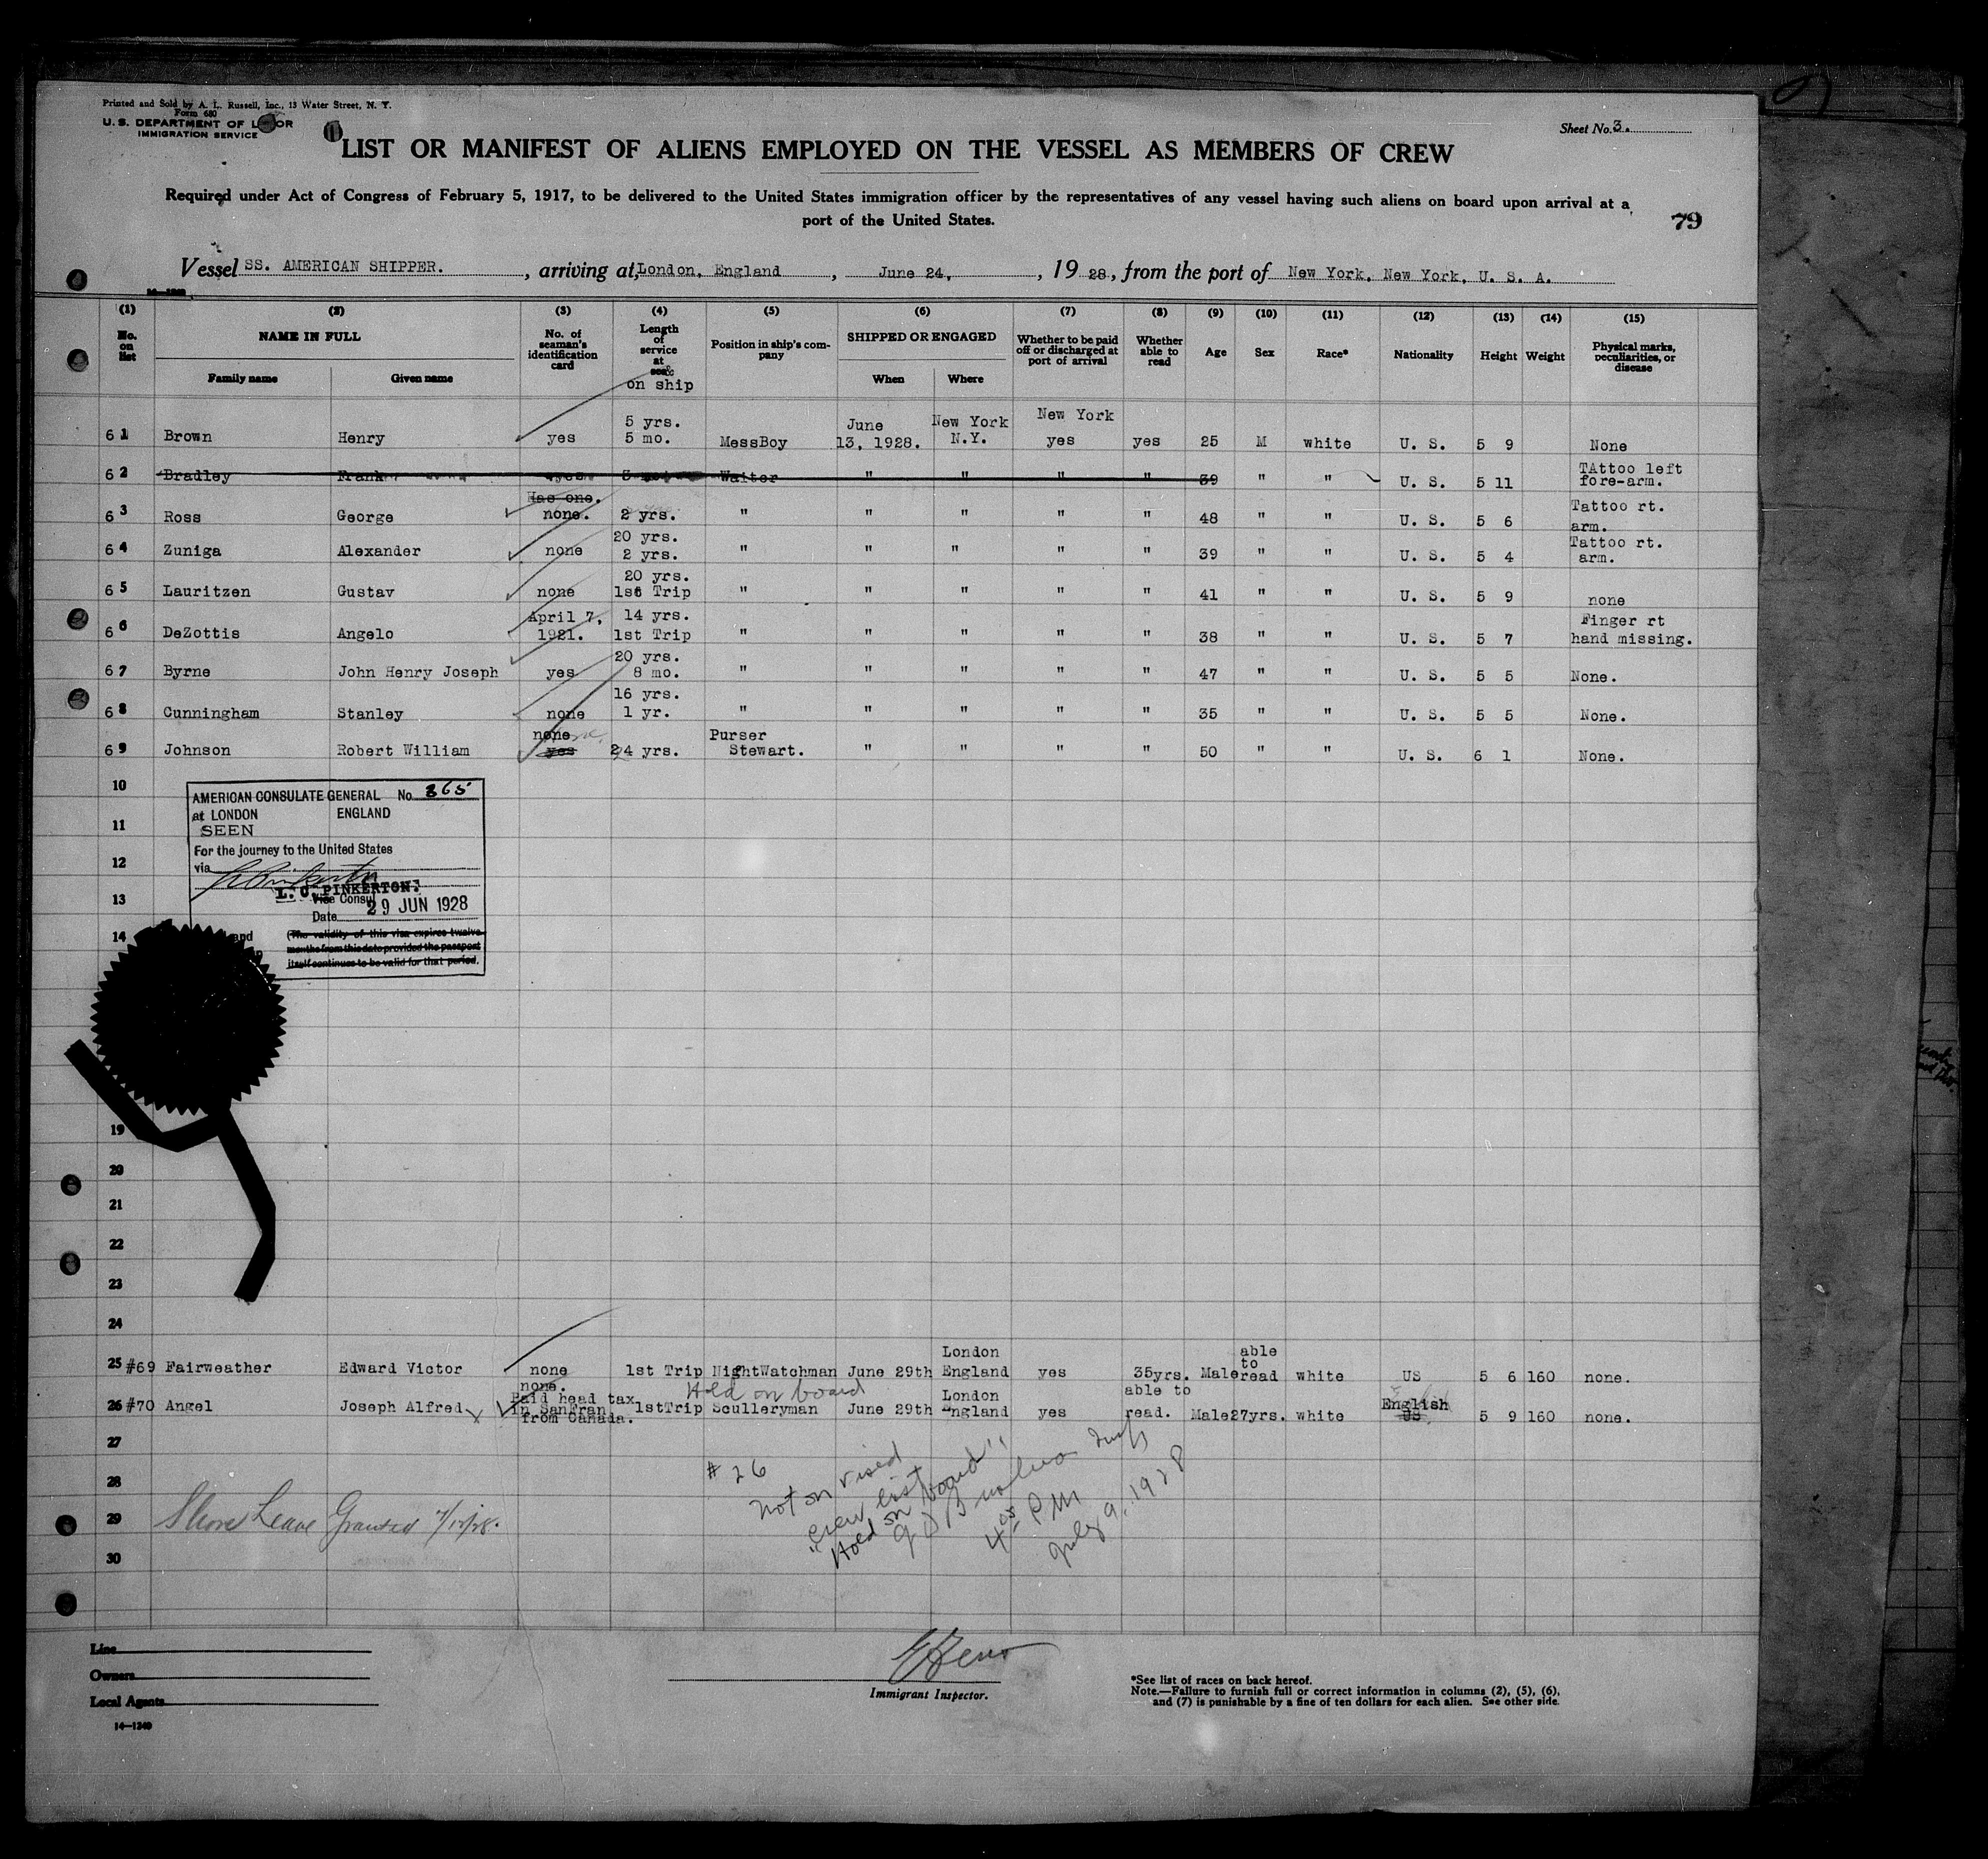 Printed and Sold by A. L. Russell, Inc., 13 Water Street, N. Y.
Form 680
U. S. DEPARTMENT OF L OR
IMMIGRATION SERVICE
Sheet No. 3.
LIST OR MANIFEST OF ALIENS EMPLOYED ON THE VESSEL AS MEMBERS OF CREW
Required under Act of Congress of February 5, 1917, to be delivered to the United States immigration officer by the representatives of any vessel having such aliens on board upon arrival at a
port of the United States.
79
Vessel SS. AMERICAN SHIPPER. , arriving at London, England , June 24, , 19 28, from the port of New York, New York, U. S. A.
(1) (2) (3) (4) (5) (6) (7) (8) (9) (10) (11) (12) (13) (14) (15)
No. on list NAME IN FULL Family name Given name No. of seaman's identification card Length of service at sea& on ship Position in ship's company SHIPPED OR ENGAGED When Where Whether to be paid off or discharged at port of arrival Whether able to read Age Sex Race* Nationality Height Weight Physical marks, peculiarities, or disease
61 Brown Henry yes 5 yrs. 5 mo. MessBoy June 13, 1928. New York N.Y. New York yes yes 25 M white U. S. 5 9 None
62 Bradley Frank yes Waiter " " " " 39 " " U. S. 5 11 TAttoo left fore-arm.
63 Ross George Has one. none. 2 yrs. " " " " " 48 " " U. S. 5 6 Tattoo rt. arm.
64 Zuniga Alexander none 20 yrs. 2 yrs. " " " " " 39 " " U. S. 5 4 Tattoo rt. arm.
65 Lauritzen Gustav none 20 yrs. 1st Trip " " " " " 41 " " U. S. 5 9 none
66 DeZottis Angelo April 7, 1921. 14 yrs. 1st Trip " " " " " 38 " " U. S. 5 7 Finger rt hand missing.
67 Byrne John Henry Joseph yes 20 yrs. 8 mo. " " " " " 47 " " U. S. 5 5 None.
68 Cunningham Stanley none 16 yrs. 1 yr. " " " " " 35 " " U. S. 5 5 None.
69 Johnson Robert William none yes 24 yrs. Purser Stewart. " " " " 50 " " U. S. 6 1 None.
10
AMERICAN CONSULATE GENERAL No. 365
at LONDON ENGLAND
11
SEEN
For the journey to the United States
12
via
L. C. PINKERTON.
13
Vice Consul
Date 29 JUN 1928
14
(The validity of this visa expires twelve
months from this date provided the passport
itself continues to be valid for that period.
19
20
21
22
23
24
25 #69 Fairweather Edward Victor none 1st Trip NightWatchman June 29th London England yes 35yrs. Male able to read white US 5 6 160 none.
Hold on board
26 #70 Angel Joseph Alfred none. Paid head tax in SanFran from Canada. 1stTrip Sculleryman June 29th London England yes able to read. Male 27yrs. white English US 5 9 160 none.
27
28
29
30
# 26
Not on vised
"Crew list
Hold on board"
4 05 P M
July 9, 1928
Shore Leave Granted 7/12/28.
Line
Owners
Local Agents
14—1240
Immigrant Inspector.
*See list of races on back hereof.
Note.—Failure to furnish full or correct information in columns (2), (5), (6),
and (7) is punishable by a fine of ten dollars for each alien. See other side.